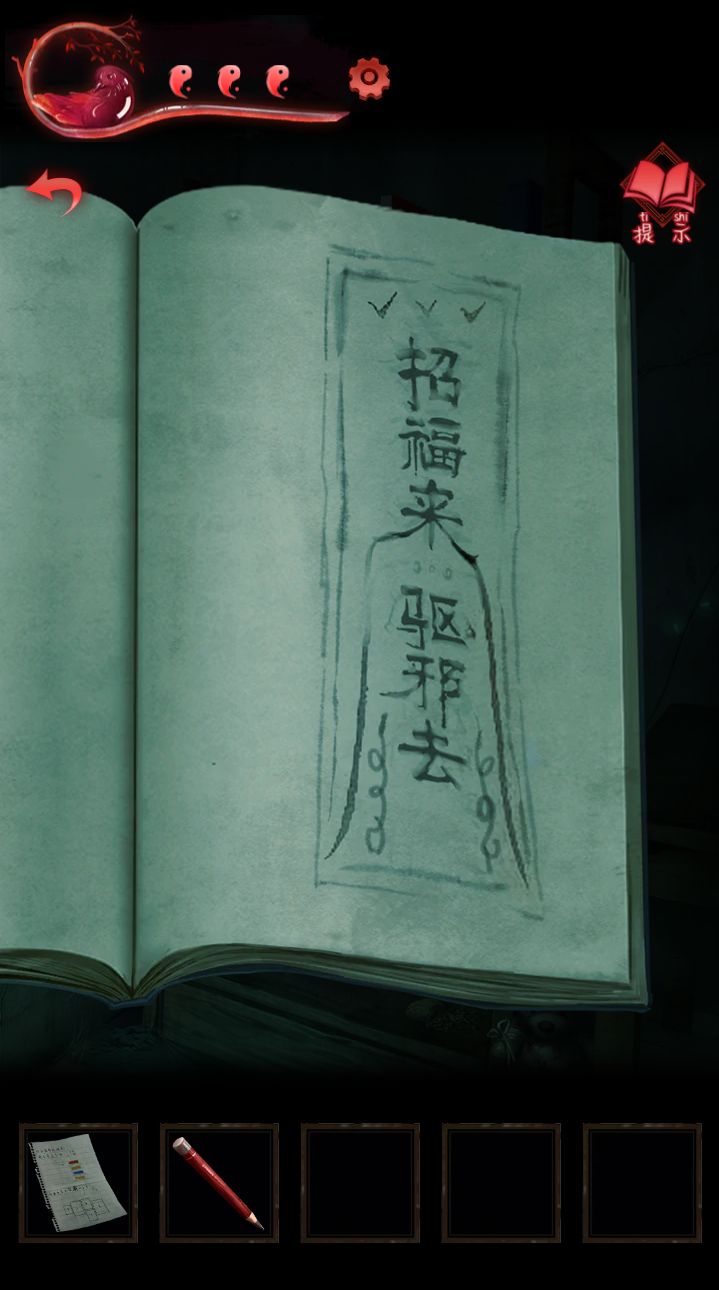 ti shi
提 示
招福来
驱邪去